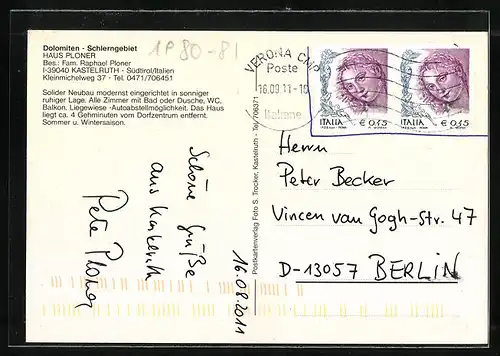 Dolomiten - Schlerngebiet
HAUS PLONER
Bes.: Fam. Raphael Ploner
I-39040 KASTELRUTH - Südtirol/Italien
Kleinmichelweg 37 - Tel. 0471/706451
Solider Neubau modernst eingerichtet in sonniger
ruhiger Lage. Alle Zimmer mit Bad oder Dusche, WC,
Balkon. Liegewiese - Autoabstellmöglichkeit. Das Haus
liegt ca. 4 Gehminuten vom Dorfzentrum entfernt.
Sommer u. Wintersaison.
1P 80-81
Schöne Grüße
aus Kastelruth
Pete Ploner
16.09.2011
Postkartenverlag Foto S. Trocker, Kastelruth - Tel. 706371
VERONA CMP
Poste
16.09.11-1
Italiane
ITALIA
€ 0,45
ITALIA
€ 0,45
Herrn
Peter Becker
Vincen van Gogh-Str. 47
D-13057 BERLIN